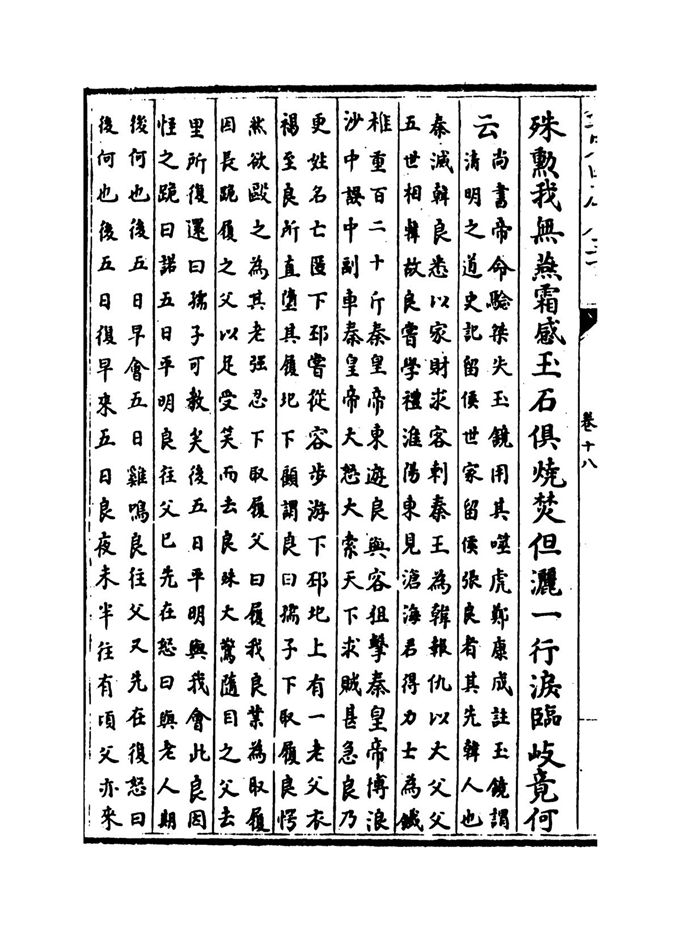 卷十八
殊勲我無燕霜感玉石俱燒焚但灑一行淚臨岐竟何
云
尚書帝命驗桀失玉鏡用其噬虎鄭康成註玉鏡謂
清明之道史記留侯世家留侯張良者其先韓人也
秦滅韓良悉以家財求客刺秦王為韓報仇以大父父
五世相韓故良嘗學禮淮陽東見滄海君得力士為鐵
椎重百二十斤秦皇帝東遊良與客狙擊秦皇帝博浪
沙中誤中副車秦皇帝大怒大索天下求賊甚急良乃
更姓名亡匿下邳嘗從容步游下邳圯上有一老父衣
褐至良所直墮其履圯下顧謂良曰孺子下取履良愕
然欲毆之為其老强忍下取履父曰履我良業為取履
因長跪履之父以足受笑而去良殊大驚隨目之父去
里所復還曰孺子可教矣後五日平明與我會此良因
怪之跪曰諾五日平明良往父已先在怒曰與老人期
後何也後五日早會五日雞鳴良往父又先在復怒曰
後何也後五日復早來五日良夜未半往有頃父亦來